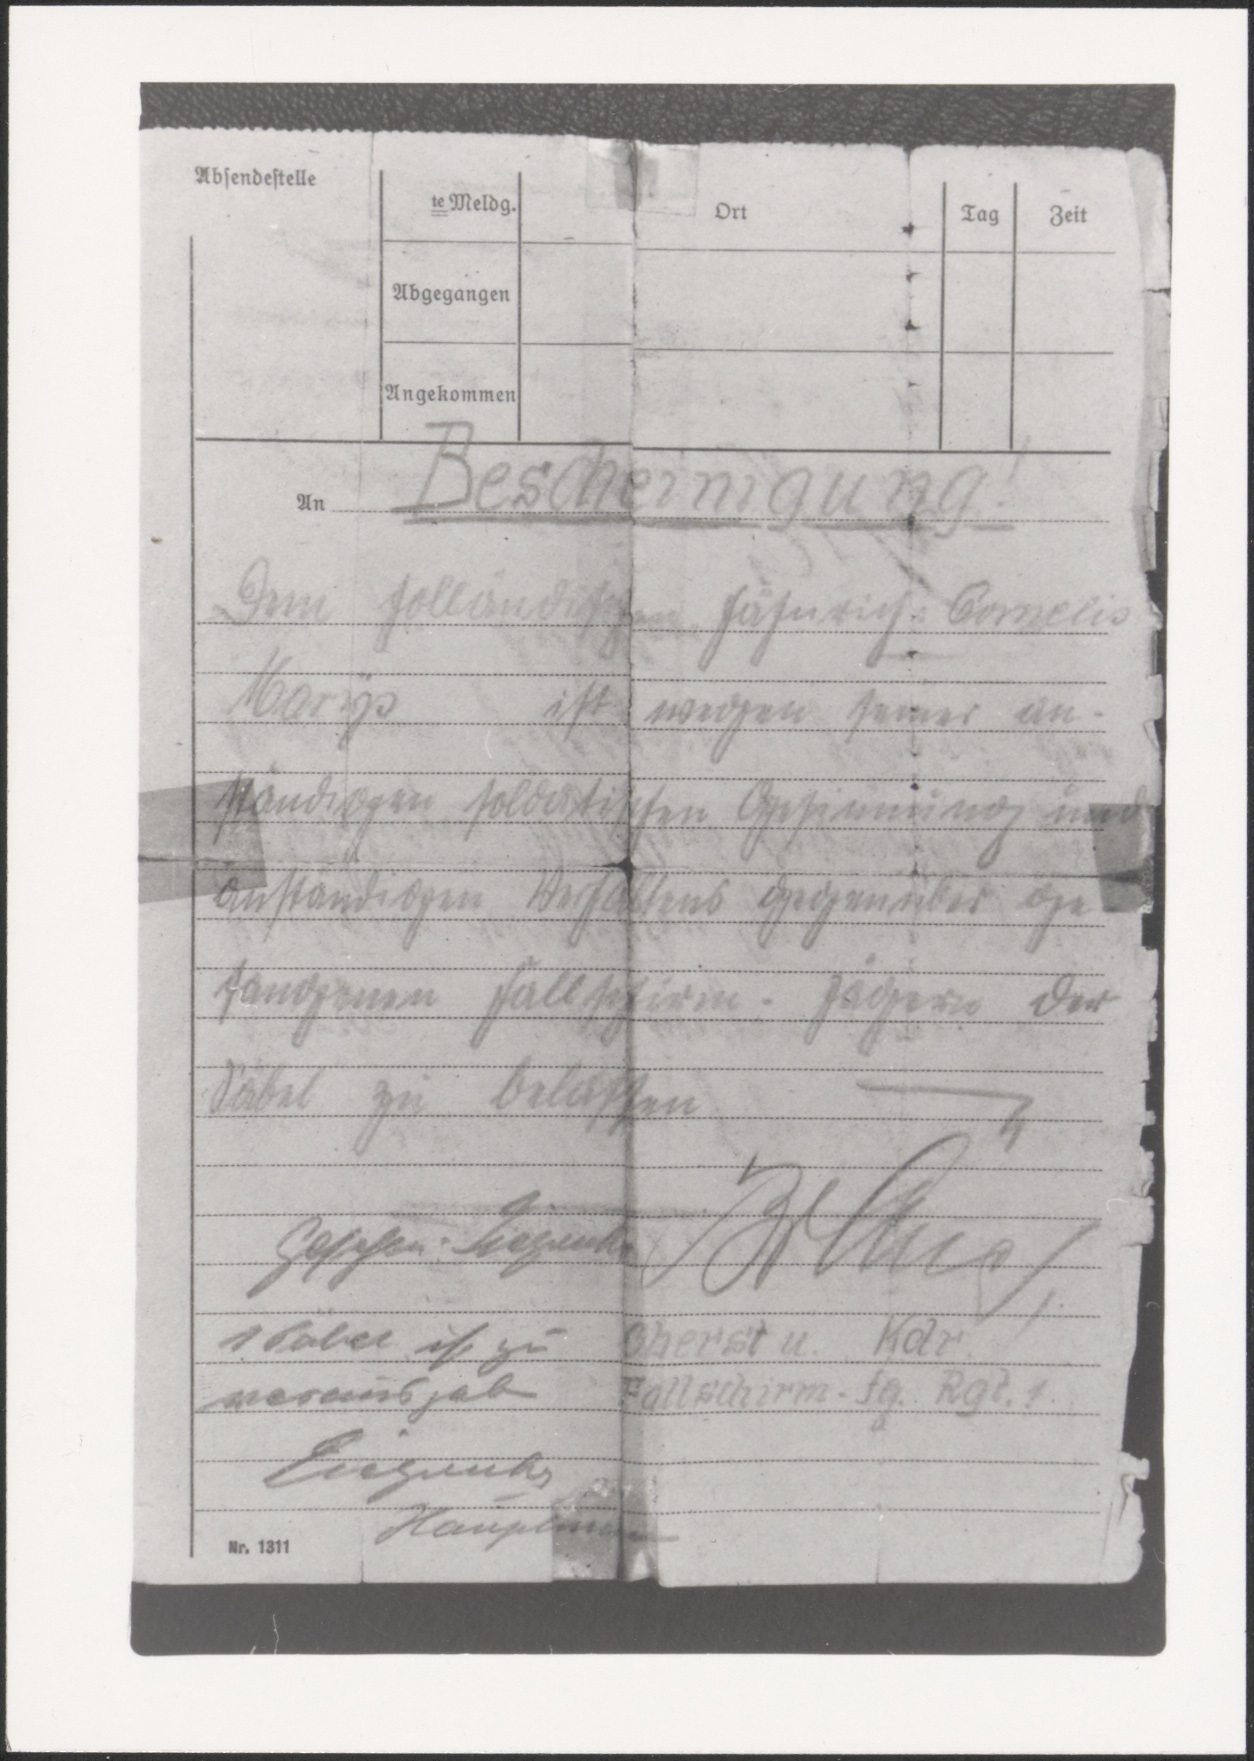 Absendestelle
te Meldg.
Ort
Tag
Zeit
Abgegangen
Angekommen
An Bescheinigung!
Dem holländischen Fähnrich: Cornelis
Marijs ist wegen seiner an-
ständigen soldatischen Gesinnung und
anständigen Verhaltens gegenüber ge-
fangenen Fallschirm-Jägern der
Säbel zu belassen
Gesehen:
1 Säbel ist zu
Oberst u. Kdr.
Fallschirm-Jg. Rgt. 1.
Hauptmann
Nr. 1311